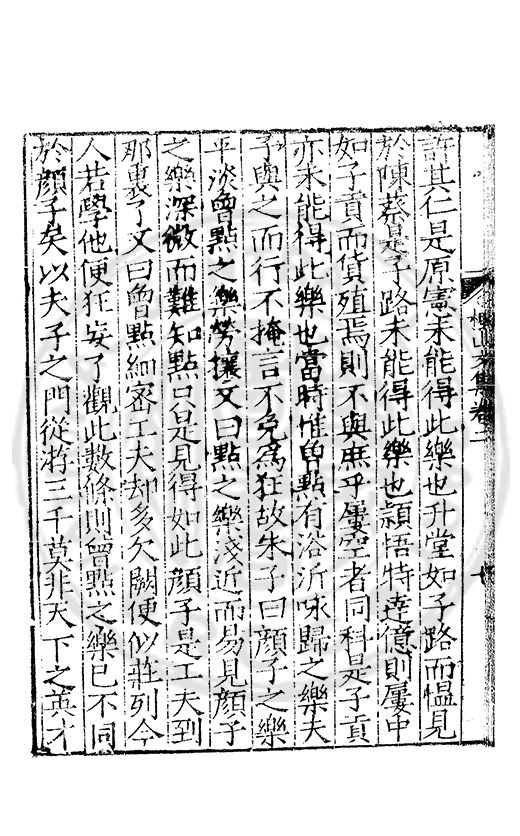 許其仁是原憲未能得此樂也升堂如子路而慍見
於陳蔡是子路未能得此樂也頴悟特達億則屢中
如子貢而貨殖焉則不與庶乎屢空者同科是子貢
亦未能得此樂也當時惟曽點有浴沂咏歸之樂夫
子與之而行不掩言不免為狂故朱子曰顔子之樂
平淡曾點之樂勞攘又曰點之樂淺近而易見顔子
之樂深微而難知點只是見得如此顔子是工夫到
那裏了又曰曾點細密工夫却多欠闕便似莊列今
人若學他便狂妄了觀此數條則曾點之樂已不同
於顔子矣以夫子之門從游三千莫非天下之英才